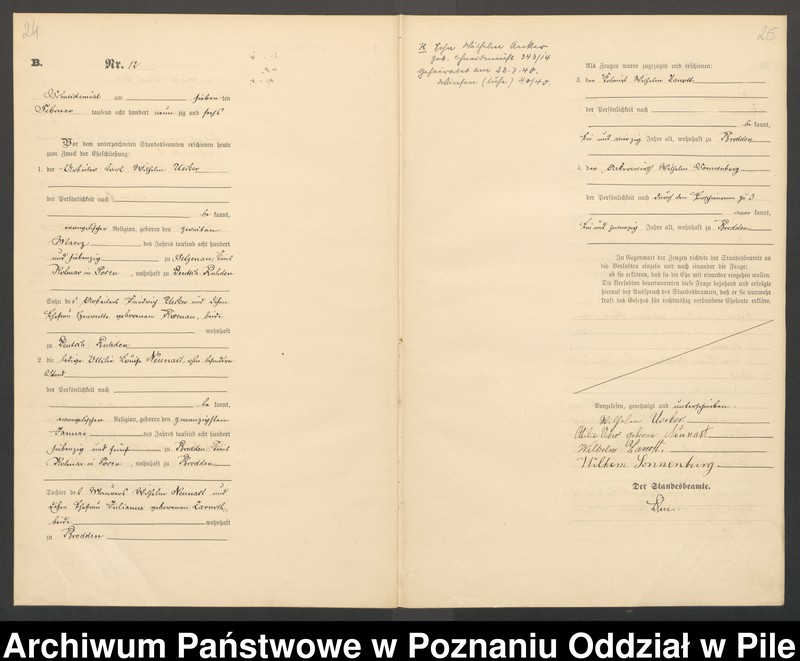 24
B.
Nr. 12
Schneidemühl am sieben ten
Februar tausend acht hundert neunzig und sechs
Vor dem unterzeichneten Standesbeamten erschienen heute
zum Zweck der Eheschließung:
1. der Arbeiter Karl Wilhelm Uecker
der Persönlichkeit nach
be kannt,
evangelischer Religion, geboren den zweiten
Maerz des Jahres tausend acht hundert
und siebenzig zu Selgenau, Kreis
Kolmar in Posen, wohnhaft zu Deutsch Ruhden
Sohn des Arbeiters Ludwig Uecker und dessen
Ehefrau Henriette geborenen beide
wohnhaft
zu Deutsch Ruhden
2. die ledige Ottilie Louise Neunast, ohne besonderen
Stand
der Persönlichkeit nach
be kannt,
evangelischer Religion, geboren den zwanzigsten
Januar des Jahres tausend acht hundert
siebenzig und fünf zu Brodden Kreis
Kolmar in Posen, wohnhaft zu Brodden
Tochter des Maurers Wilhelm Neunast und
dessen Ehefrau Julianna geborenen
beide wohnhaft
zu Brodden
25
Sohn Wilhelm Uecker
geb. Schneidemühl 343/14
geheiratet am 22.7.40.
Winsen (Luhe) 40/40.
Als Zeugen waren zugezogen und erschienen:
3. der Wilhelm
der Persönlichkeit nach
be kannt,
Jahre alt, wohnhaft zu Brodden
4. der Wilhelm Sonnenburg
der Persönlichkeit nach durch den Erschienenen zu 3
aner kannt,
und zwanzig Jahre alt, wohnhaft zu Brodden
In Gegenwart der Zeugen richtete der Standesbeamte an
die Verlobten einzeln und nach einander die Frage:
ob sie erklären, daß sie die Ehe mit einander eingehen wollen.
Die Verlobten beantworteten diese Frage bejahend und erfolgte
hierauf der Ausspruch des Standesbeamten, daß er sie nunmehr
kraft des Gesetzes für rechtmäßig verbundene Eheleute erkläre.
Vorgelesen, genehmigt und unterschrieben.
Wilhelm Uecker
geborene Neunast
Wilhelm
Wilhelm Sonnenburg
Der Standesbeamte.
Archiwum Państwowe w Poznaniu Oddział w Pile